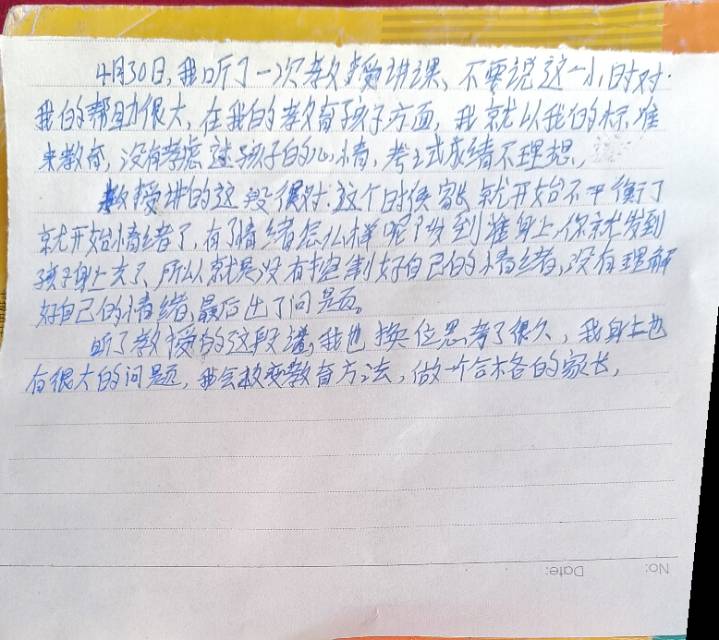 4月30日,我听了一次教授讲课、不要说这一小时对
我的帮助很大,在我的教育孩子方面,我就以我的标准
来教育,没有考虑过孩子的心情,考试成绩不理想,
教授讲的这段很对.这个时侯家长就开始不平衡了
就开始情绪了,有了情绪怎么样呢?发到谁身上,你就发到
孩子身上去了,所以就是没有控制好自己的情绪,没有理解
好自己的情绪,最后出了问题。
听了教授的这段话,我也换位思考了很久,我身上也
有很大的问题,我会改变教育方法,做一个合格的家长,
No: Date: